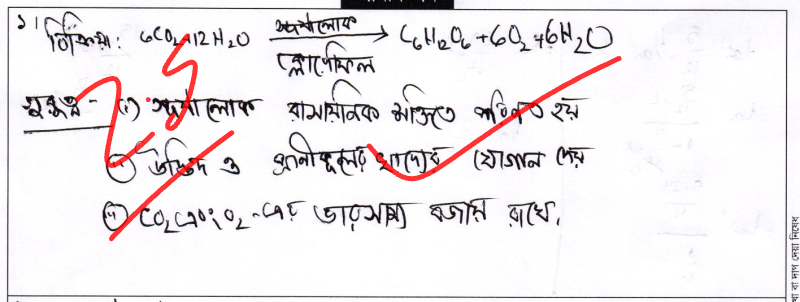 ১। বিক্রিয়া: 6CO2+12H2O সূর্যালোক → C6H12O6+6O2+6H2O
ক্লোরোফিল
গুরুত্ব - (i) সূর্যালোক রাসায়নিক শক্তিতে পরিণত হয়
2.5
উদ্ভিদ ও প্রাণীকুলের খাদ্যের যোগান দেয়
CO2 এবং O2-এর ভারসাম্য বজায় রাখে।
বা দাগ দেয়া নিষেধ